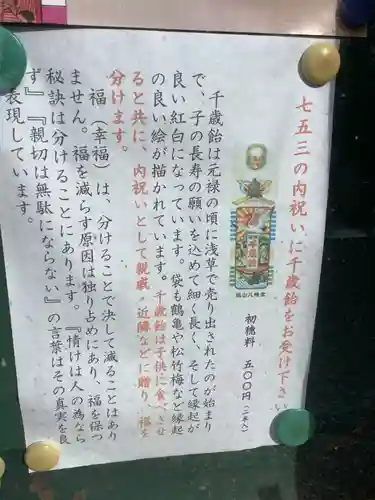 七五三の内祝いに千歳飴をお受け下さい
初穂料 五〇〇円(二本入)
千歳飴は元禄の頃に浅草で売り出されたのが始まり
で、子の長寿の願いを込めて細く長く、そして縁起が
良い紅白になっています。袋も鶴亀や松竹梅など縁起
の良い絵が描かれています。千歳飴は子供に食べさせ
ると共に、内祝いとして親戚・近隣などに贈り、福を
分けます。
福(幸福)は、分けることで決して減ることはあり
ません。福を減らす原因は独り占めにあり、福を保つ
秘訣は分けることにあります。『情けは人の為なら
ず』『親切は無駄にならない』の言葉はその真実を良く
表現しています。